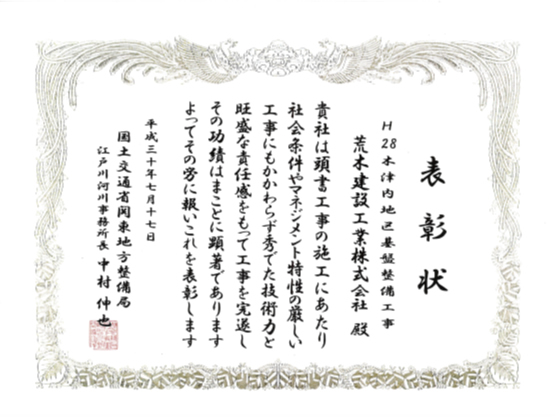 表彰状
H28木津内地区基盤整備工事
荒木建設工業株式会社 殿
貴社は頭書工事の施工にあたり
社会条件やマネジメント特性の厳しい
工事にもかかわらず秀でた技術力と
旺盛な責任感をもって工事を完遂し
その功績はまことに顕著であります
よってその労に報いこれを表彰します
平成三十年七月十七日
国土交通省関東地方整備局
江戸川河川事務所長 中村伸也